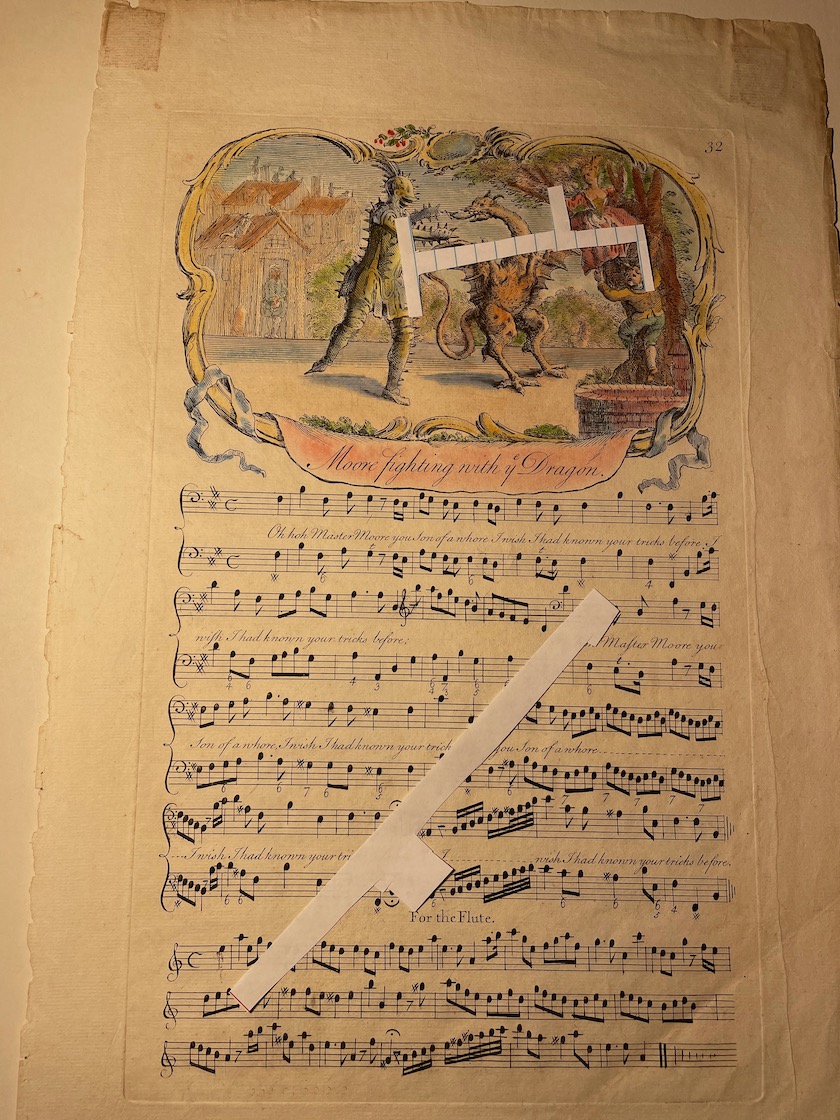 32
Moore fighting with yᵉ Dragon.
Oh hoh Master Moore you Son of a whore I wish I had known your tricks before, I
wish I had known your tricks before; Master Moore you
Son of a whore, I wish I had known your you Son of a whore
I wish I had known your I wish I had known your tricks before.
For the Flute.